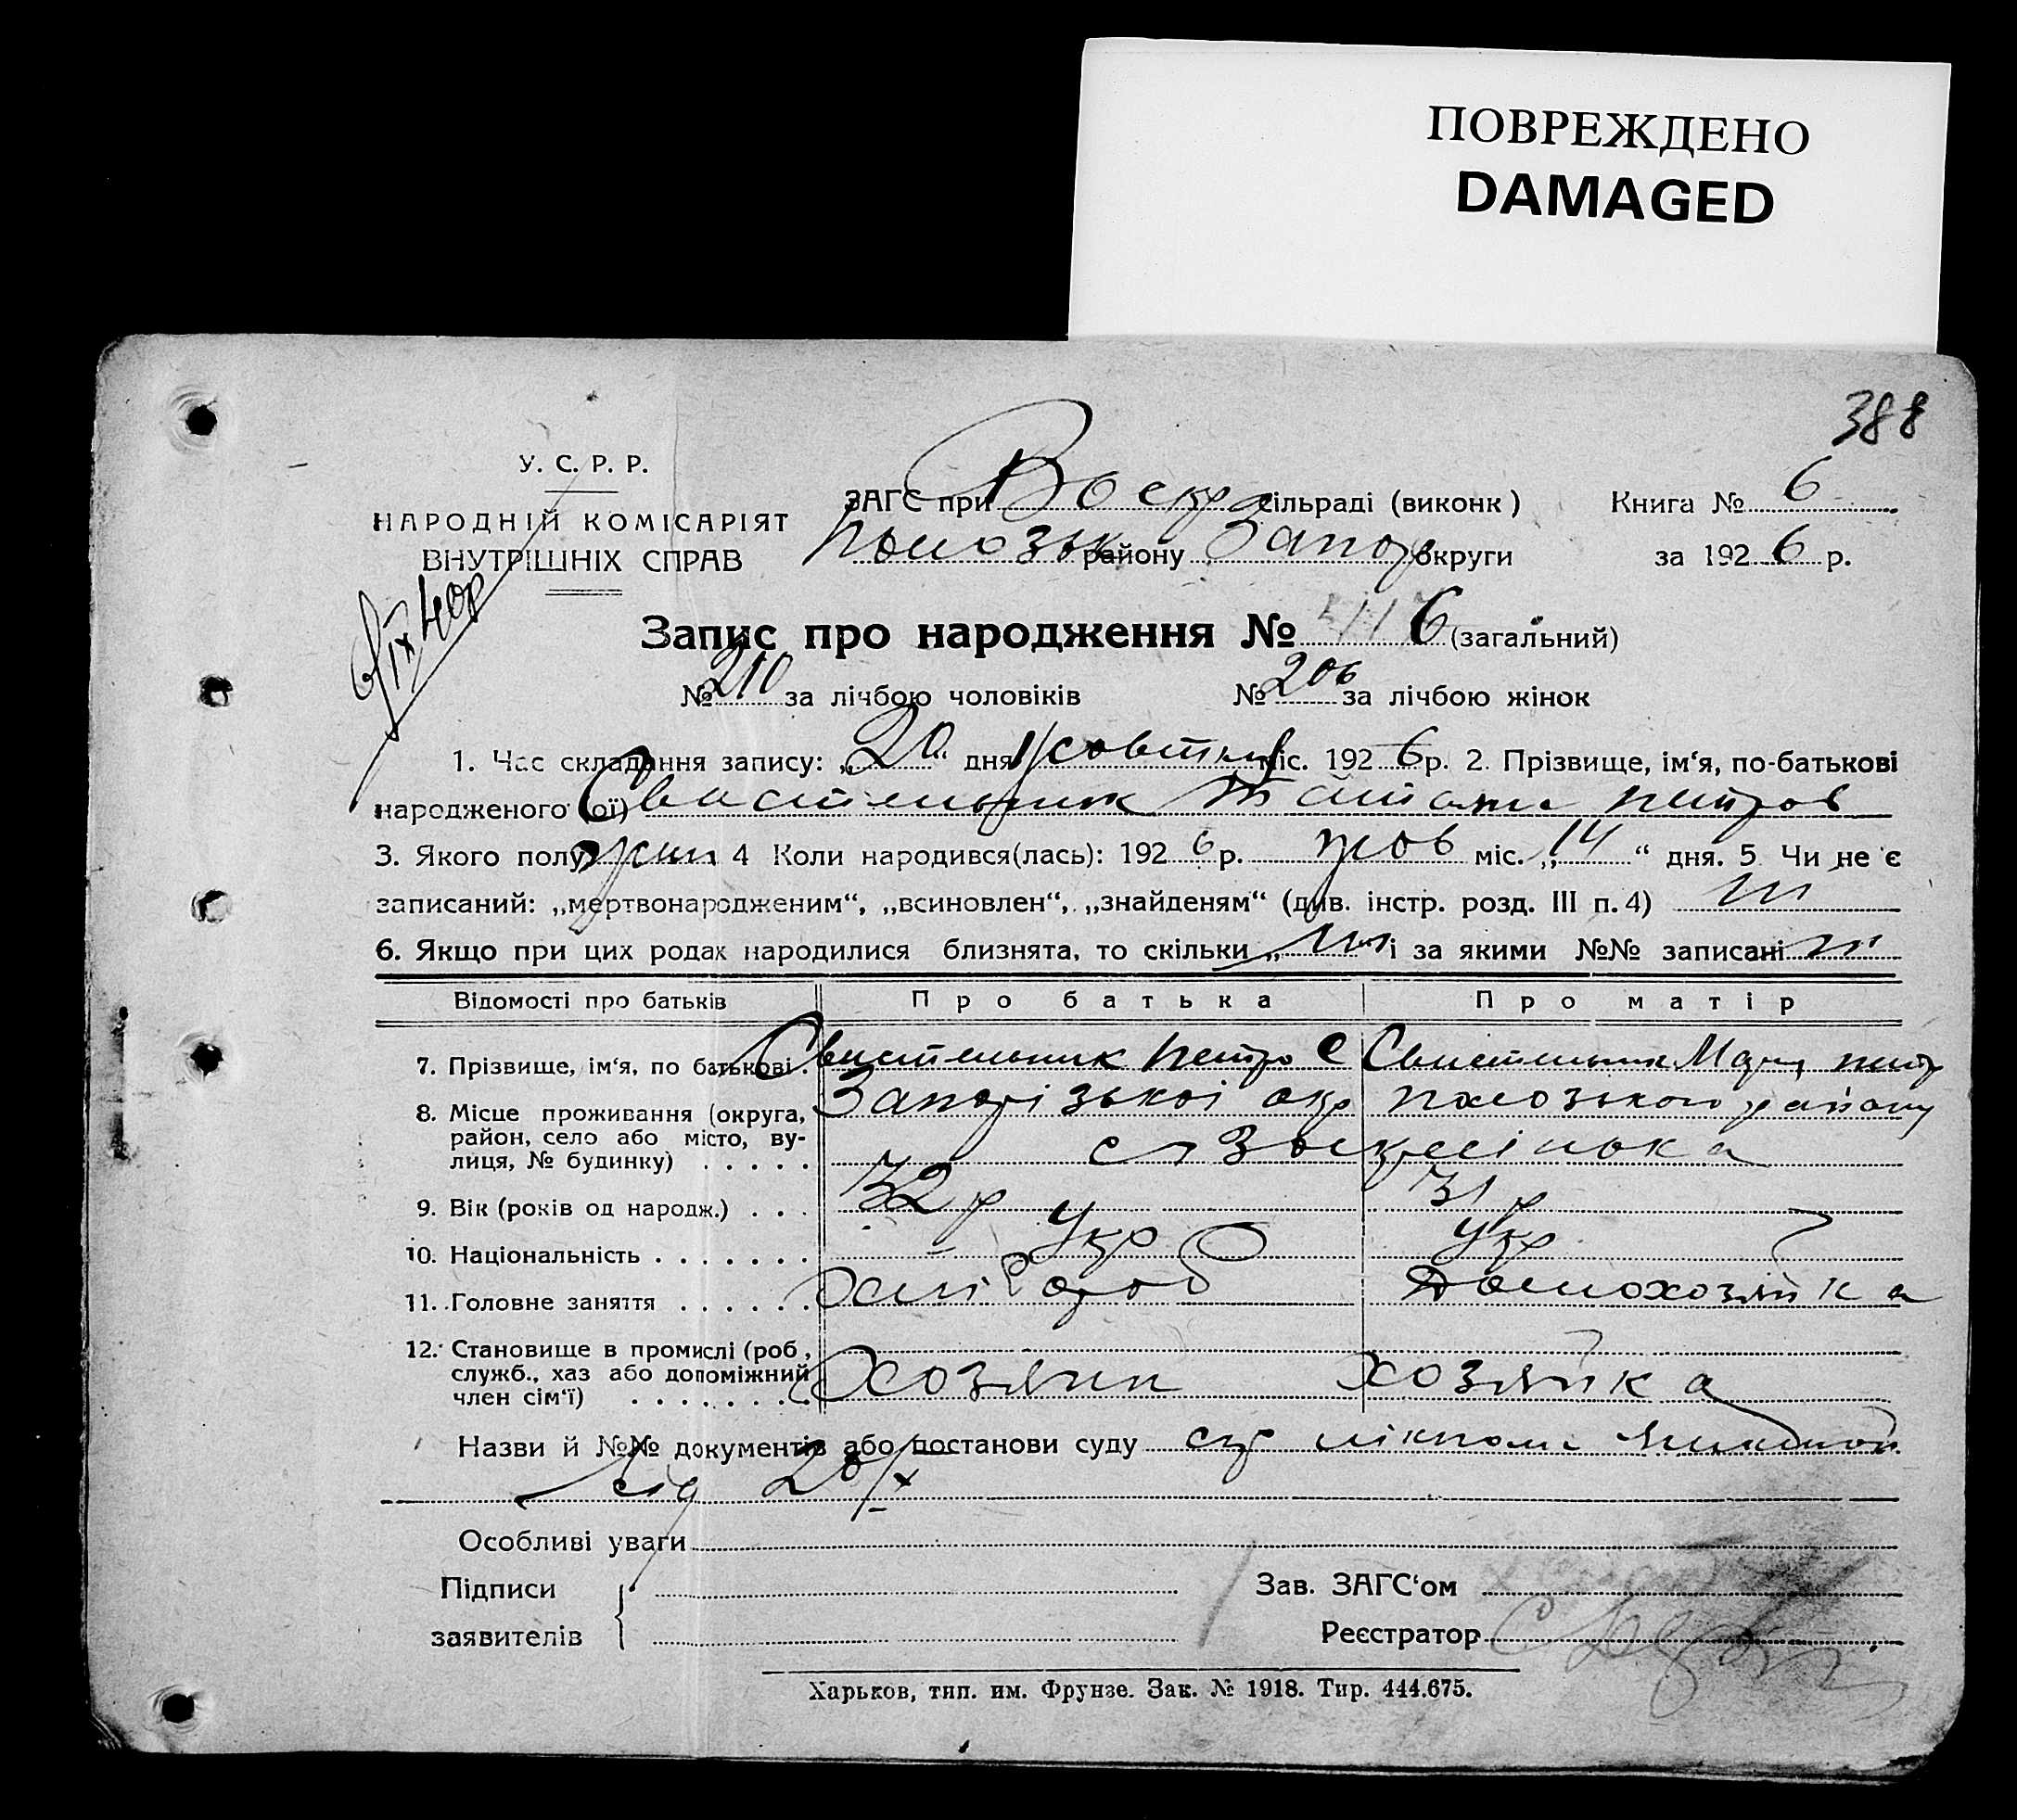 ПОВРЕЖДЕНО
DAMAGED
388
У. С. Р. Р.
НАРОДНІЙ КОМІСАРІЯТ
ВНУТРІШНІХ СПРАВ
6/IX 40р
ЗАГС при Воскр сільраді (виконк) Книга № 6
Полозьк району Запор округи за 1926 р.
Запис про народження № 6 (загальний)
№ 210 за лічбою чоловіків № 206 за лічбою жінок
1. Час складання запису: „20“ дня жовтня міс. 1926 р. 2. Прізвище, ім‘я, по-батькові
народженого (ої) Свистельник Татяна Петров
3. Якого полу жін 4 Коли народився(лась): 1926 р. жов міс. „14“ дня. 5 Чи не є
записаний: „мертвонародженим“, „всиновлен“, „знайденям“ (див. інстр. розд. III п. 4)
6. Якщо при цих родах народилися близнята, то скільки „ “ і за якими №№ записані
Відомості про батьків Про батька Про матір
7. Прізвище, ім‘я, по батькові. Свистельник Петро С Свистельник Мария петр
8. Місце проживання (округа, Запорізькоі окр полозького району
район, село або місто, ву-
лиця, № будинку) . . . . . с
9. Вік (років од народж.) . . . 32 р 31 р
10. Національність . . . . . . . Укр Укр
11. Головне заняття . . . . . . Хлібороб Домохозяйка
12. Становище в промислі (роб,
служб., хаз або допоміжний хозяин хозяйка
член сім‘ї) . . . . . . .
Назви й №№ документів або постанови суду
від 20/X
Особливі уваги
Підписи Зав. ЗАГС‘ом
заявителів Реєстратор
Харьков, тип. им. Фрунзе. Зак. № 1918. Тир. 444.675.